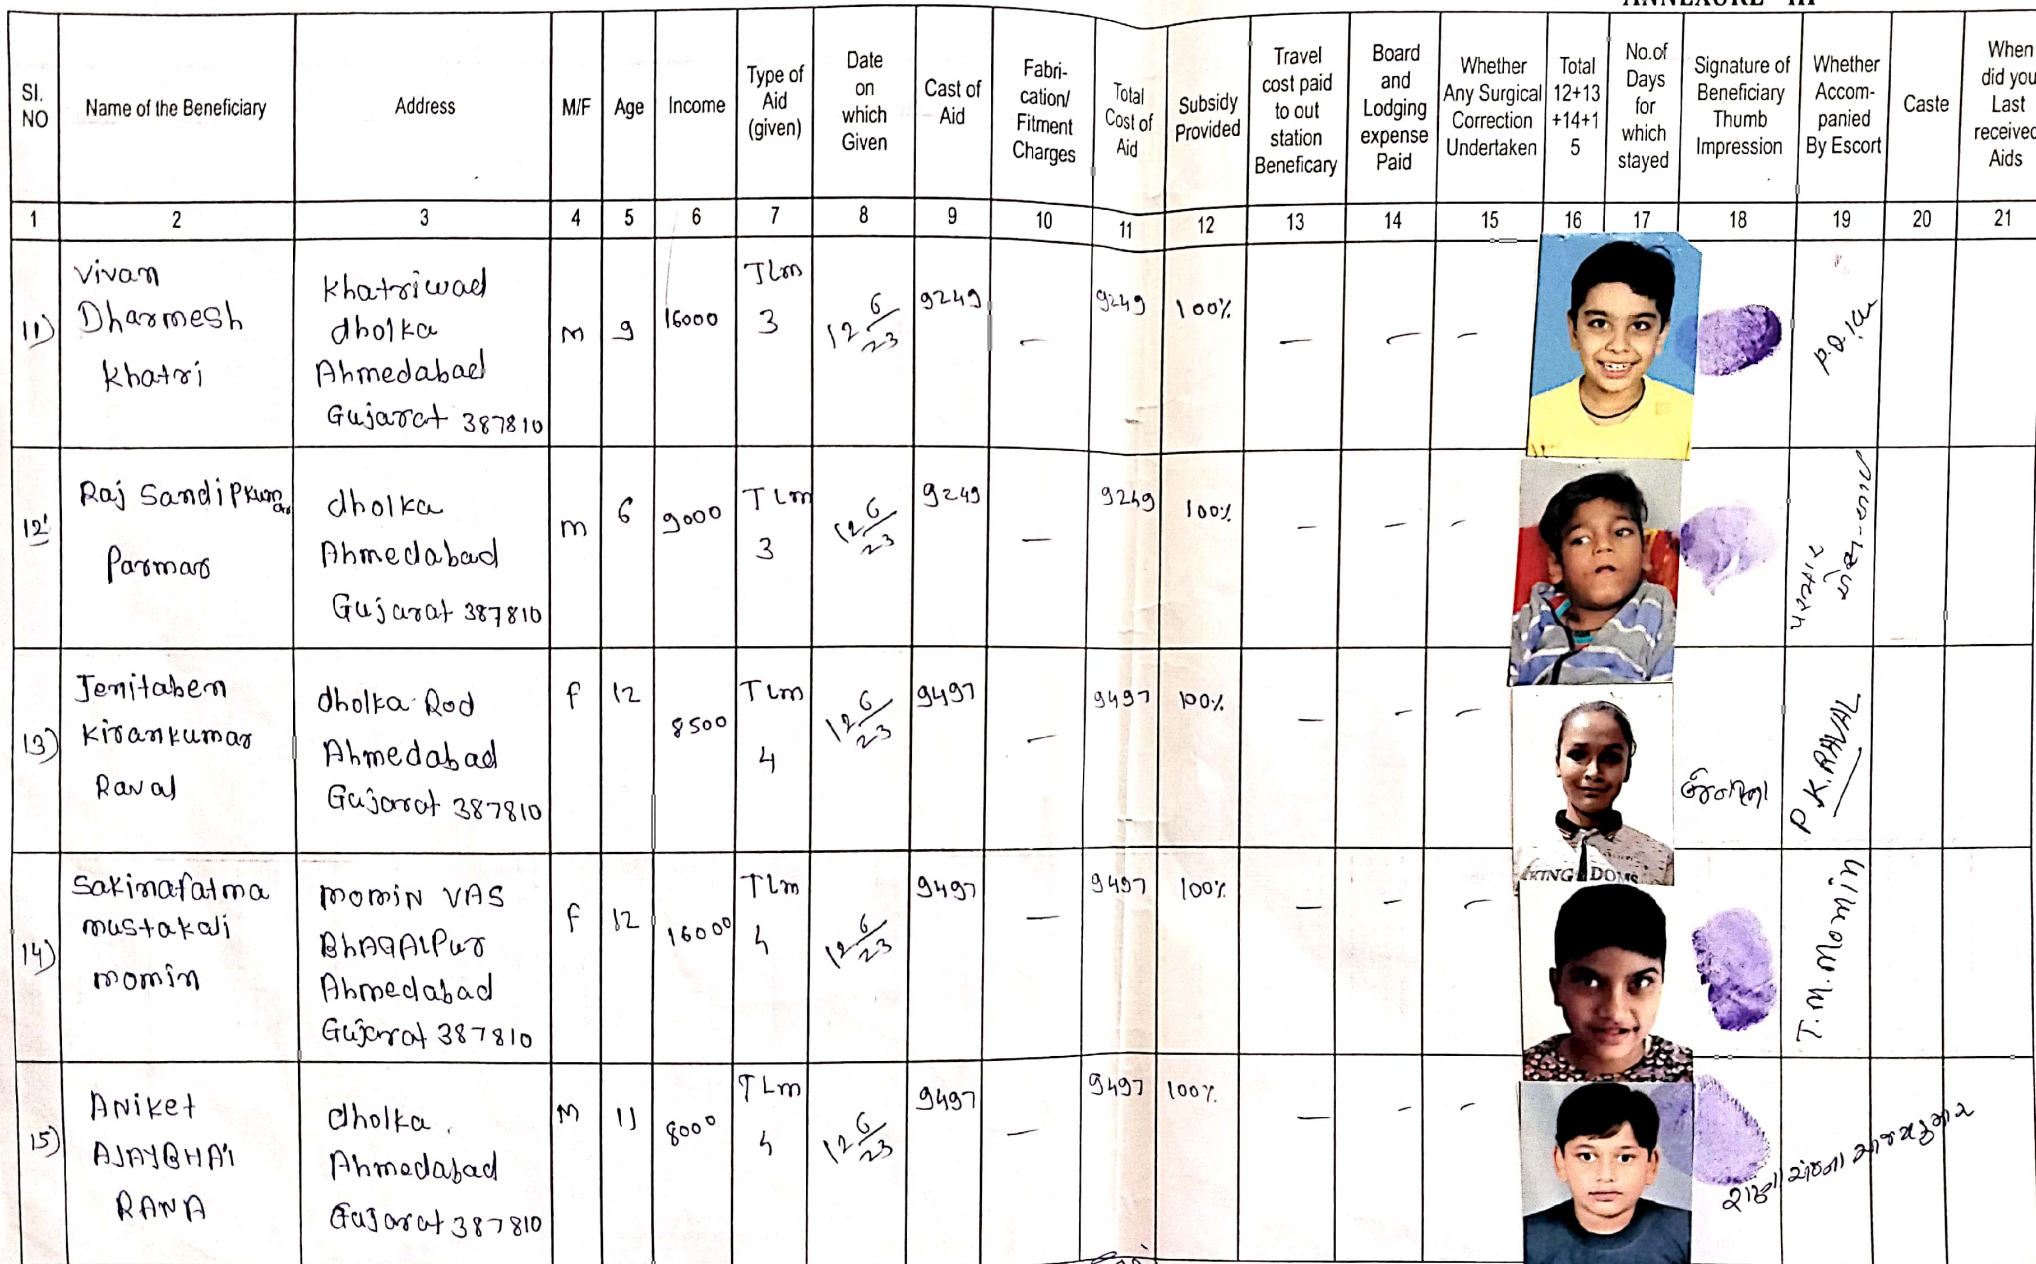 ANNEXURE - III
Sl. NO
Name of the Beneficiary
Address
M/F
Age
Income
Type of Aid (given)
Date on which Given
Cast of Aid
Fabri-cation/ Fitment Charges
Total Cost of Aid
Subsidy Provided
Travel cost paid to out station Beneficary
Board and Lodging expense Paid
Whether Any Surgical Correction Undertaken
Total 12+13 +14+1 5
No.of Days for which stayed
Signature of Beneficiary Thumb Impression
Whether Accom-panied By Escort
Caste
When did you Last received Aids
1 2 3 4 5 6 7 8 9 10 11 12 13 14 15 16 17 18 19 20 21
11) Vivan Dharmesh Khatri
Khatriwad dholka Ahmedabad Gujarat 387810
M 9 16000 TLM 3 12 6/23 9249 — 9249 100% — — —
12 Raj Sandipkumar Parmar
dholka Ahmedabad Gujarat 387810
M 6 9000 TLM 3 12 6/23 9249 — 9249 100% — — —
પરમાર
13) Jenitaben Kirankumar Raval
dholka Rod Ahmedabad Gujarat 387810
F 12 8500 TLM 4 12 6/23 9497 — 9497 100% — — —
KING DOMS
P.K.RAVAL
14) Sakinafatma mustakali momin
momin VAS BhAGALPur Ahmedabad Gujarat 387810
F 12 16000 TLM 4 12 6/23 9497 — 9497 100% — — —
T.M.Momin
15) ANiket AJAYBHAI RANA
dholka Ahmedabad Gujarat 387810
M 11 8000 TLM 4 12 6/23 9497 — 9497 100% — — —